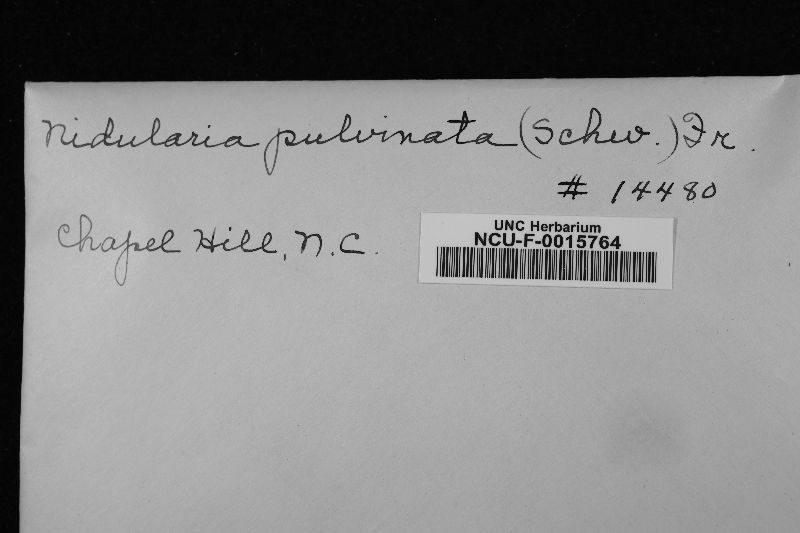 Nidularia pulvinata (Schw.) Fr.
# 14480
Chapel Hill, N.C.
UNC Herbarium
NCU-F-0015764